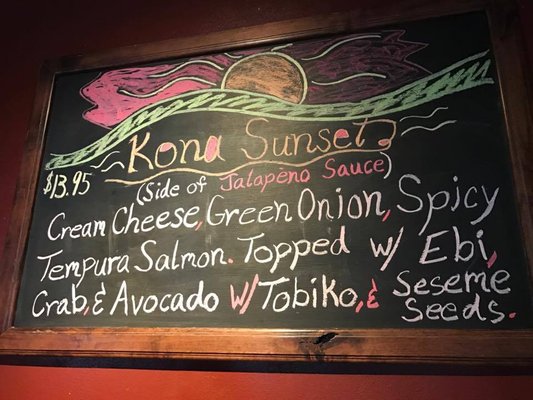 Kona Sunset
$13.95 (Side of Jalapeno Sauce)
Cream Cheese, Green Onion, Spicy
Tempura Salmon. Topped w/ Ebi,
Crab, & Avocado w/ Tobiko, & Seseme
Seeds.